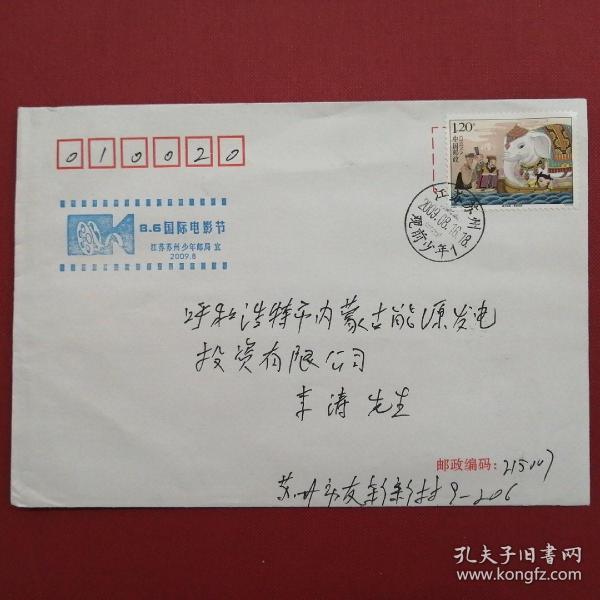 010020
1.20元
中国邮政
江苏苏州
2009.08.16.18.
观前少年1
8.6国际电影节
江苏苏州少年邮局 宣
2009.8
呼和浩特市内蒙古能源发电
投资有限公司
李涛 先生
邮政编码：215007
苏州市友新新村9-206
孔夫子旧书网
www.kongfz.com